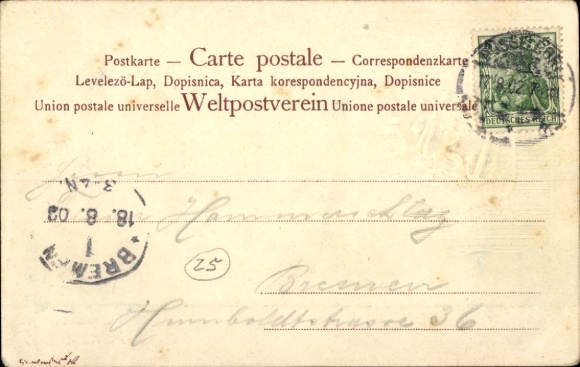 Postkarte — Carte postale — Correspondenzkarte
Levelező-Lap, Dopisnica, Karta korespondencyjna, Dopisnice
Union postale universelle Weltpostverein Unione postale universale
DEUTSCHES REICH
Herrn
Hammerschlag
Bremen
Humboldtstrasse 36
25
* BREMEN
1
18. 8. 02
3-4N.